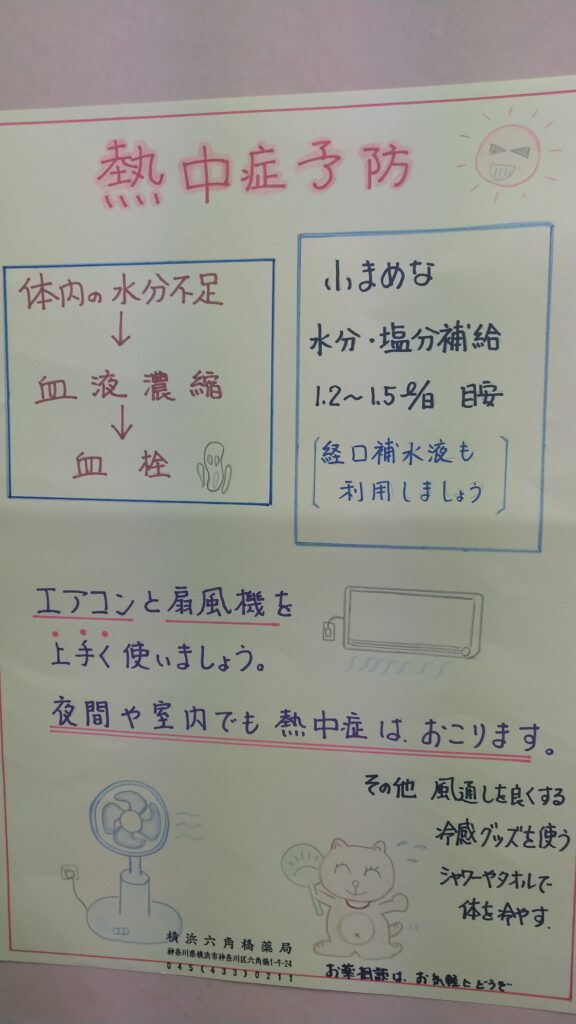 熱中症予防
体内の水分不足
↓
血液濃縮
↓
血栓
小まめな
水分・塩分補給
1.2〜1.5ℓ/日 目安
経口補水液も
利用しましょう
エアコンと扇風機を
上手く使いましょう。
夜間や室内でも熱中症は、おこります。
その他 風通しを良くする
冷感グッズを使う
シャワーやタオルで
体を冷やす.
横浜六角橋薬局
神奈川県横浜市神奈川区六角橋1-9-24
045(433)0211
お薬相談は、お気軽にどうぞ